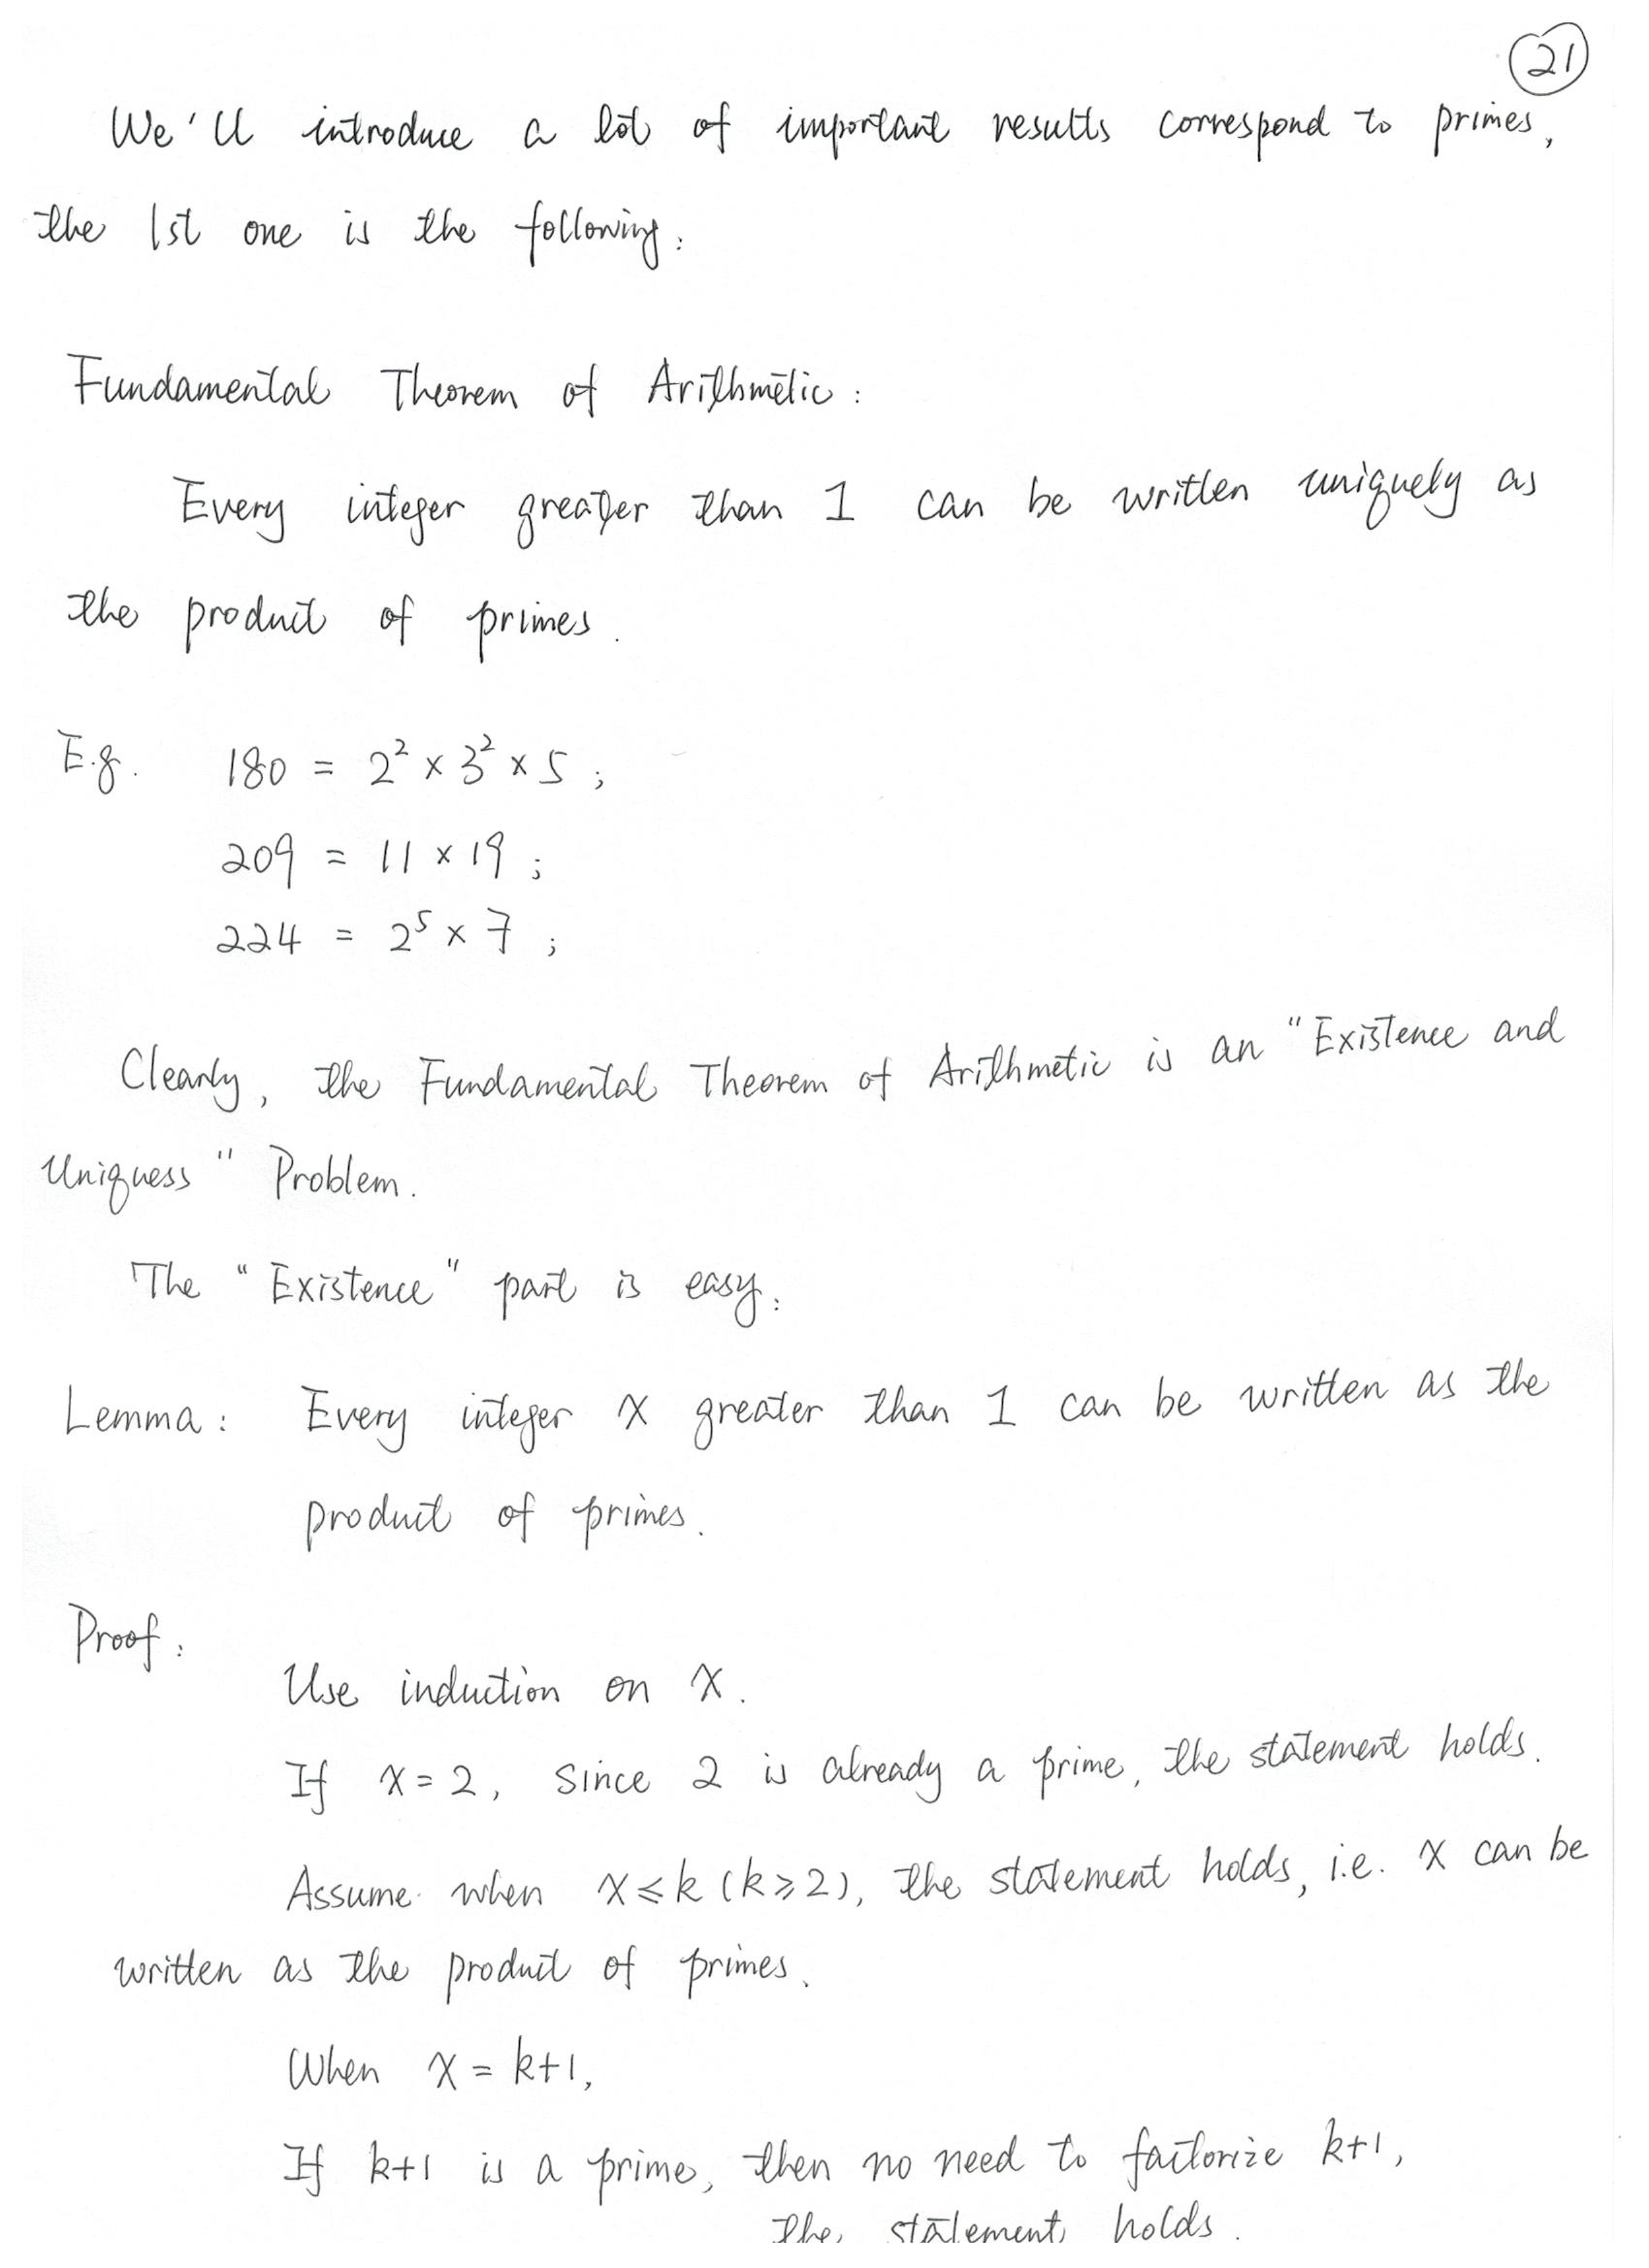 21
We'll introduce a lot of important results correspond to primes,
the 1st one is the following:
Fundamental Theorem of Arithmetic:
Every integer greater than 1 can be written uniquely as
the product of primes.
E.g. 180 = 2² × 3² × 5 ;
209 = 11 × 19 ;
224 = 2⁵ × 7 ;
Clearly, the Fundamental Theorem of Arithmetic is an "Existence and
Uniquess" Problem.
The "Existence" part is easy:
Lemma: Every integer x greater than 1 can be written as the
product of primes.
Proof:
Use induction on x.
If x = 2, since 2 is already a prime, the statement holds.
Assume when x ⩽ k (k ⩾ 2), the statement holds, i.e. x can be
written as the product of primes.
When x = k+1,
If k+1 is a prime, then no need to factorize k+1,
the statement holds.